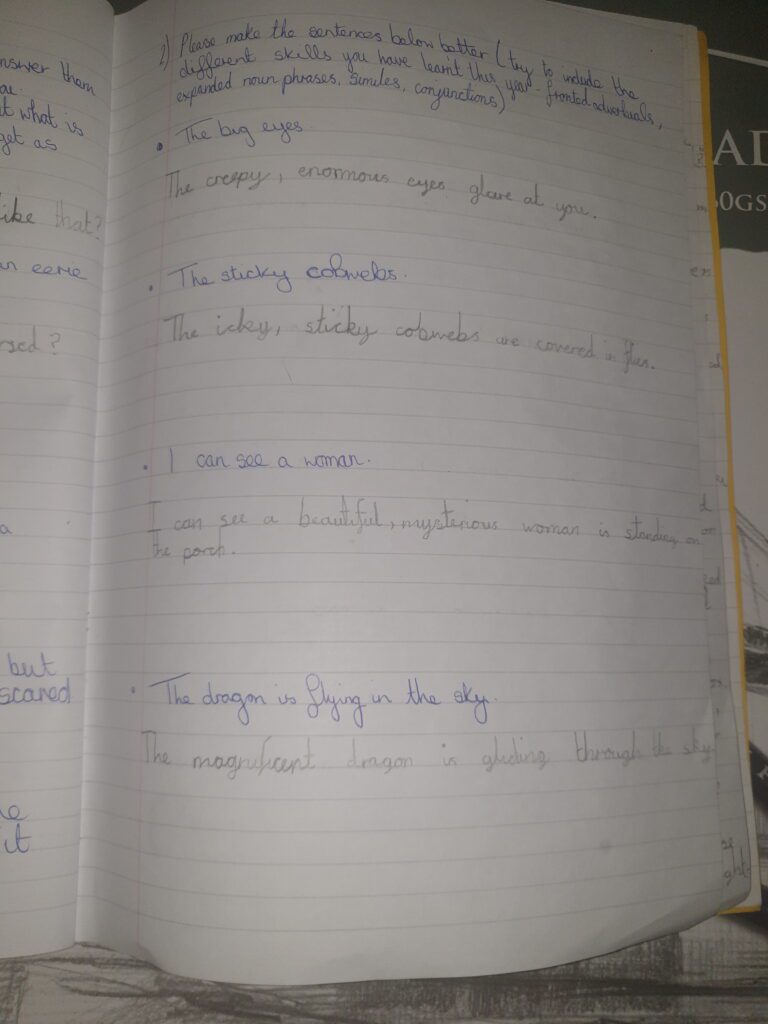 2) Please make the sentences below better (try to include the
different skills you have learnt this year - fronted adverbials,
expanded noun phrases, similes, conjunctions)
• The big eyes.
The creepy, enormous eyes glare at you.
• The sticky cobwebs.
The icky, sticky cobwebs are covered in flies.
• I can see a woman.
I can see a beautiful, mysterious woman is standing on
the porch.
• The dragon is flying in the sky.
The magnificent dragon is gliding through the sky
nswer them
t what is
get as
like that?
an eerie
rsed?
a
but
scared
it
AD
0GS